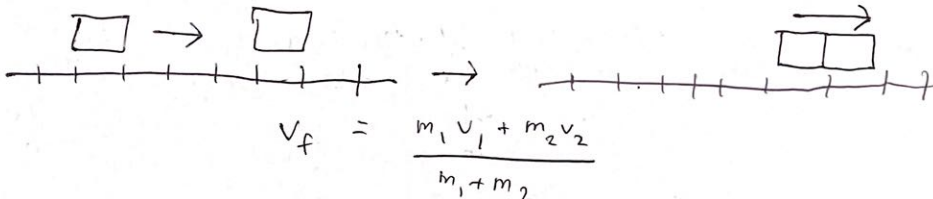 V_f = (m_1 v_1 + m_2 v_2) / (m_1 + m_2)